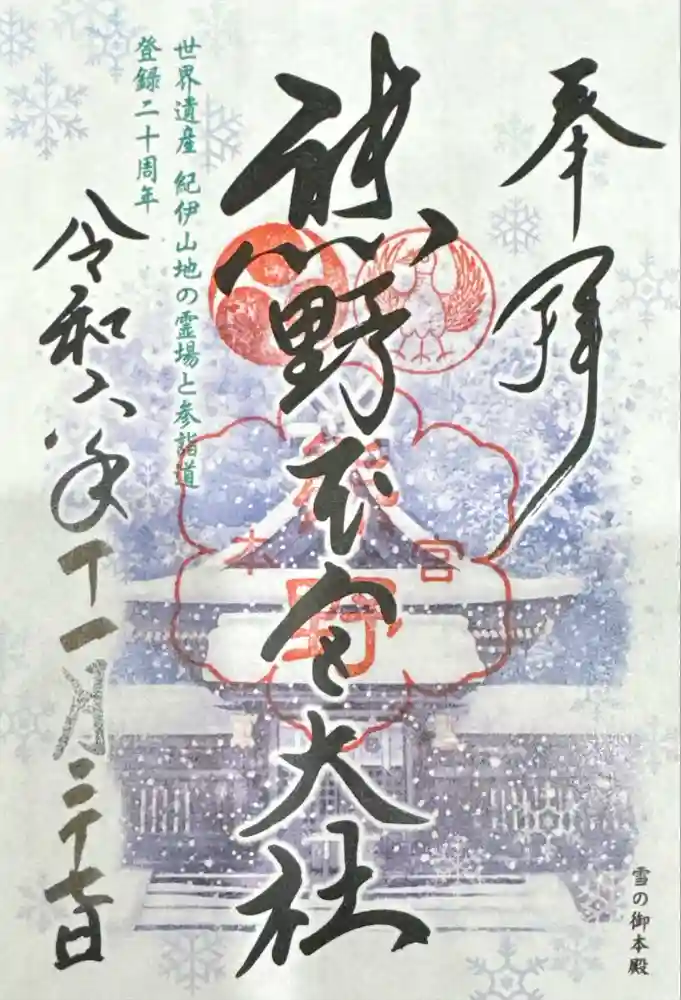 奉拝
熊野本宮大社
熊野
本宮
世界遺産 紀伊山地の霊場と参詣道
登録二十周年
令和六年十一月二十七日
雪の御本殿